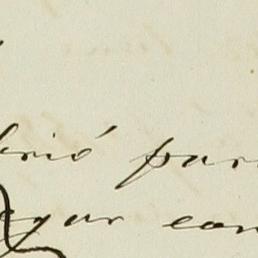 brió par
gar con